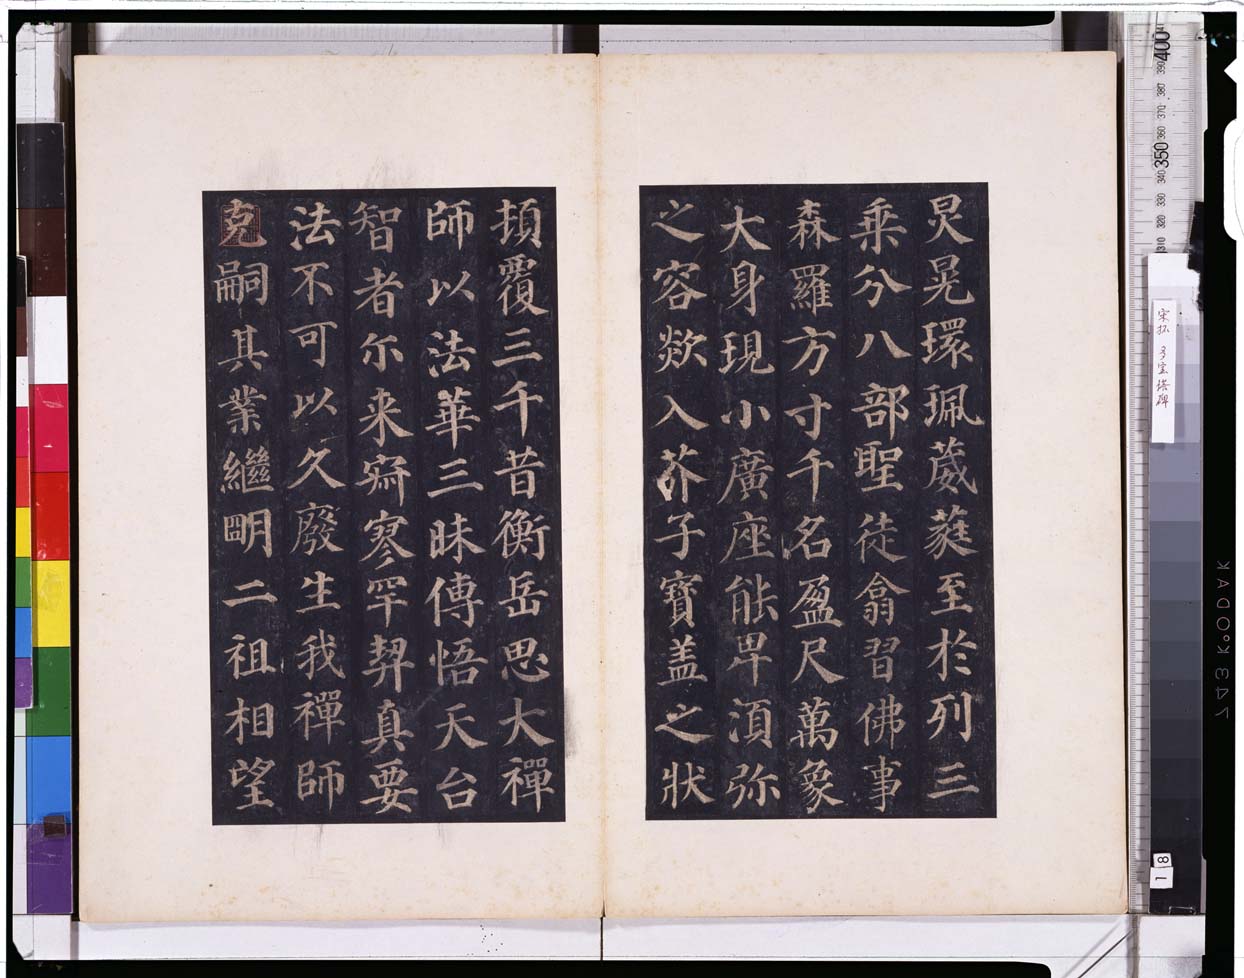 炅晃環珮葳蕤至於列三
乘分八部聖徒翕習佛事
森羅方寸千名盈尺萬象
大身現小廣座能卑須弥
之容欻入芥子寶盖之狀
頃覆三千昔衡岳思大禪
師以法華三昧傳悟天台
智者尔来寂寥罕契真要
法不可以久廢生我禪師
克嗣其業繼明二祖相望
宋拓 多宝塔碑
400
390
387
370
360
350
340
330
320
310
18
743 KODAK